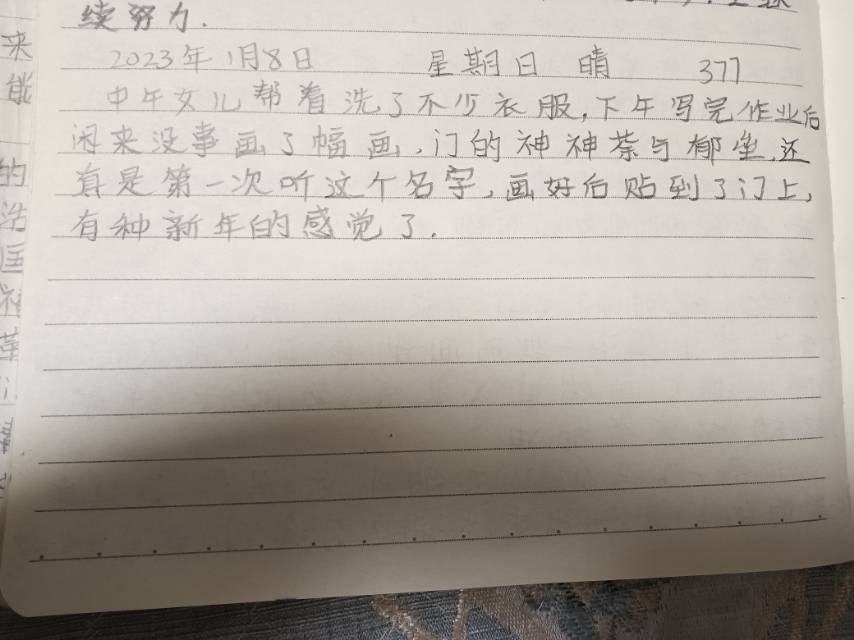 续努力.
2023年1月8日 星期日 晴 377
中午女儿帮着洗了不少衣服,下午写完作业后
闲来没事画了幅画,门的神神荼与郁垒,还
真是第一次听这个名字,画好后贴到了门上,
有种新年的感觉了.
来
能
的
浩
匡